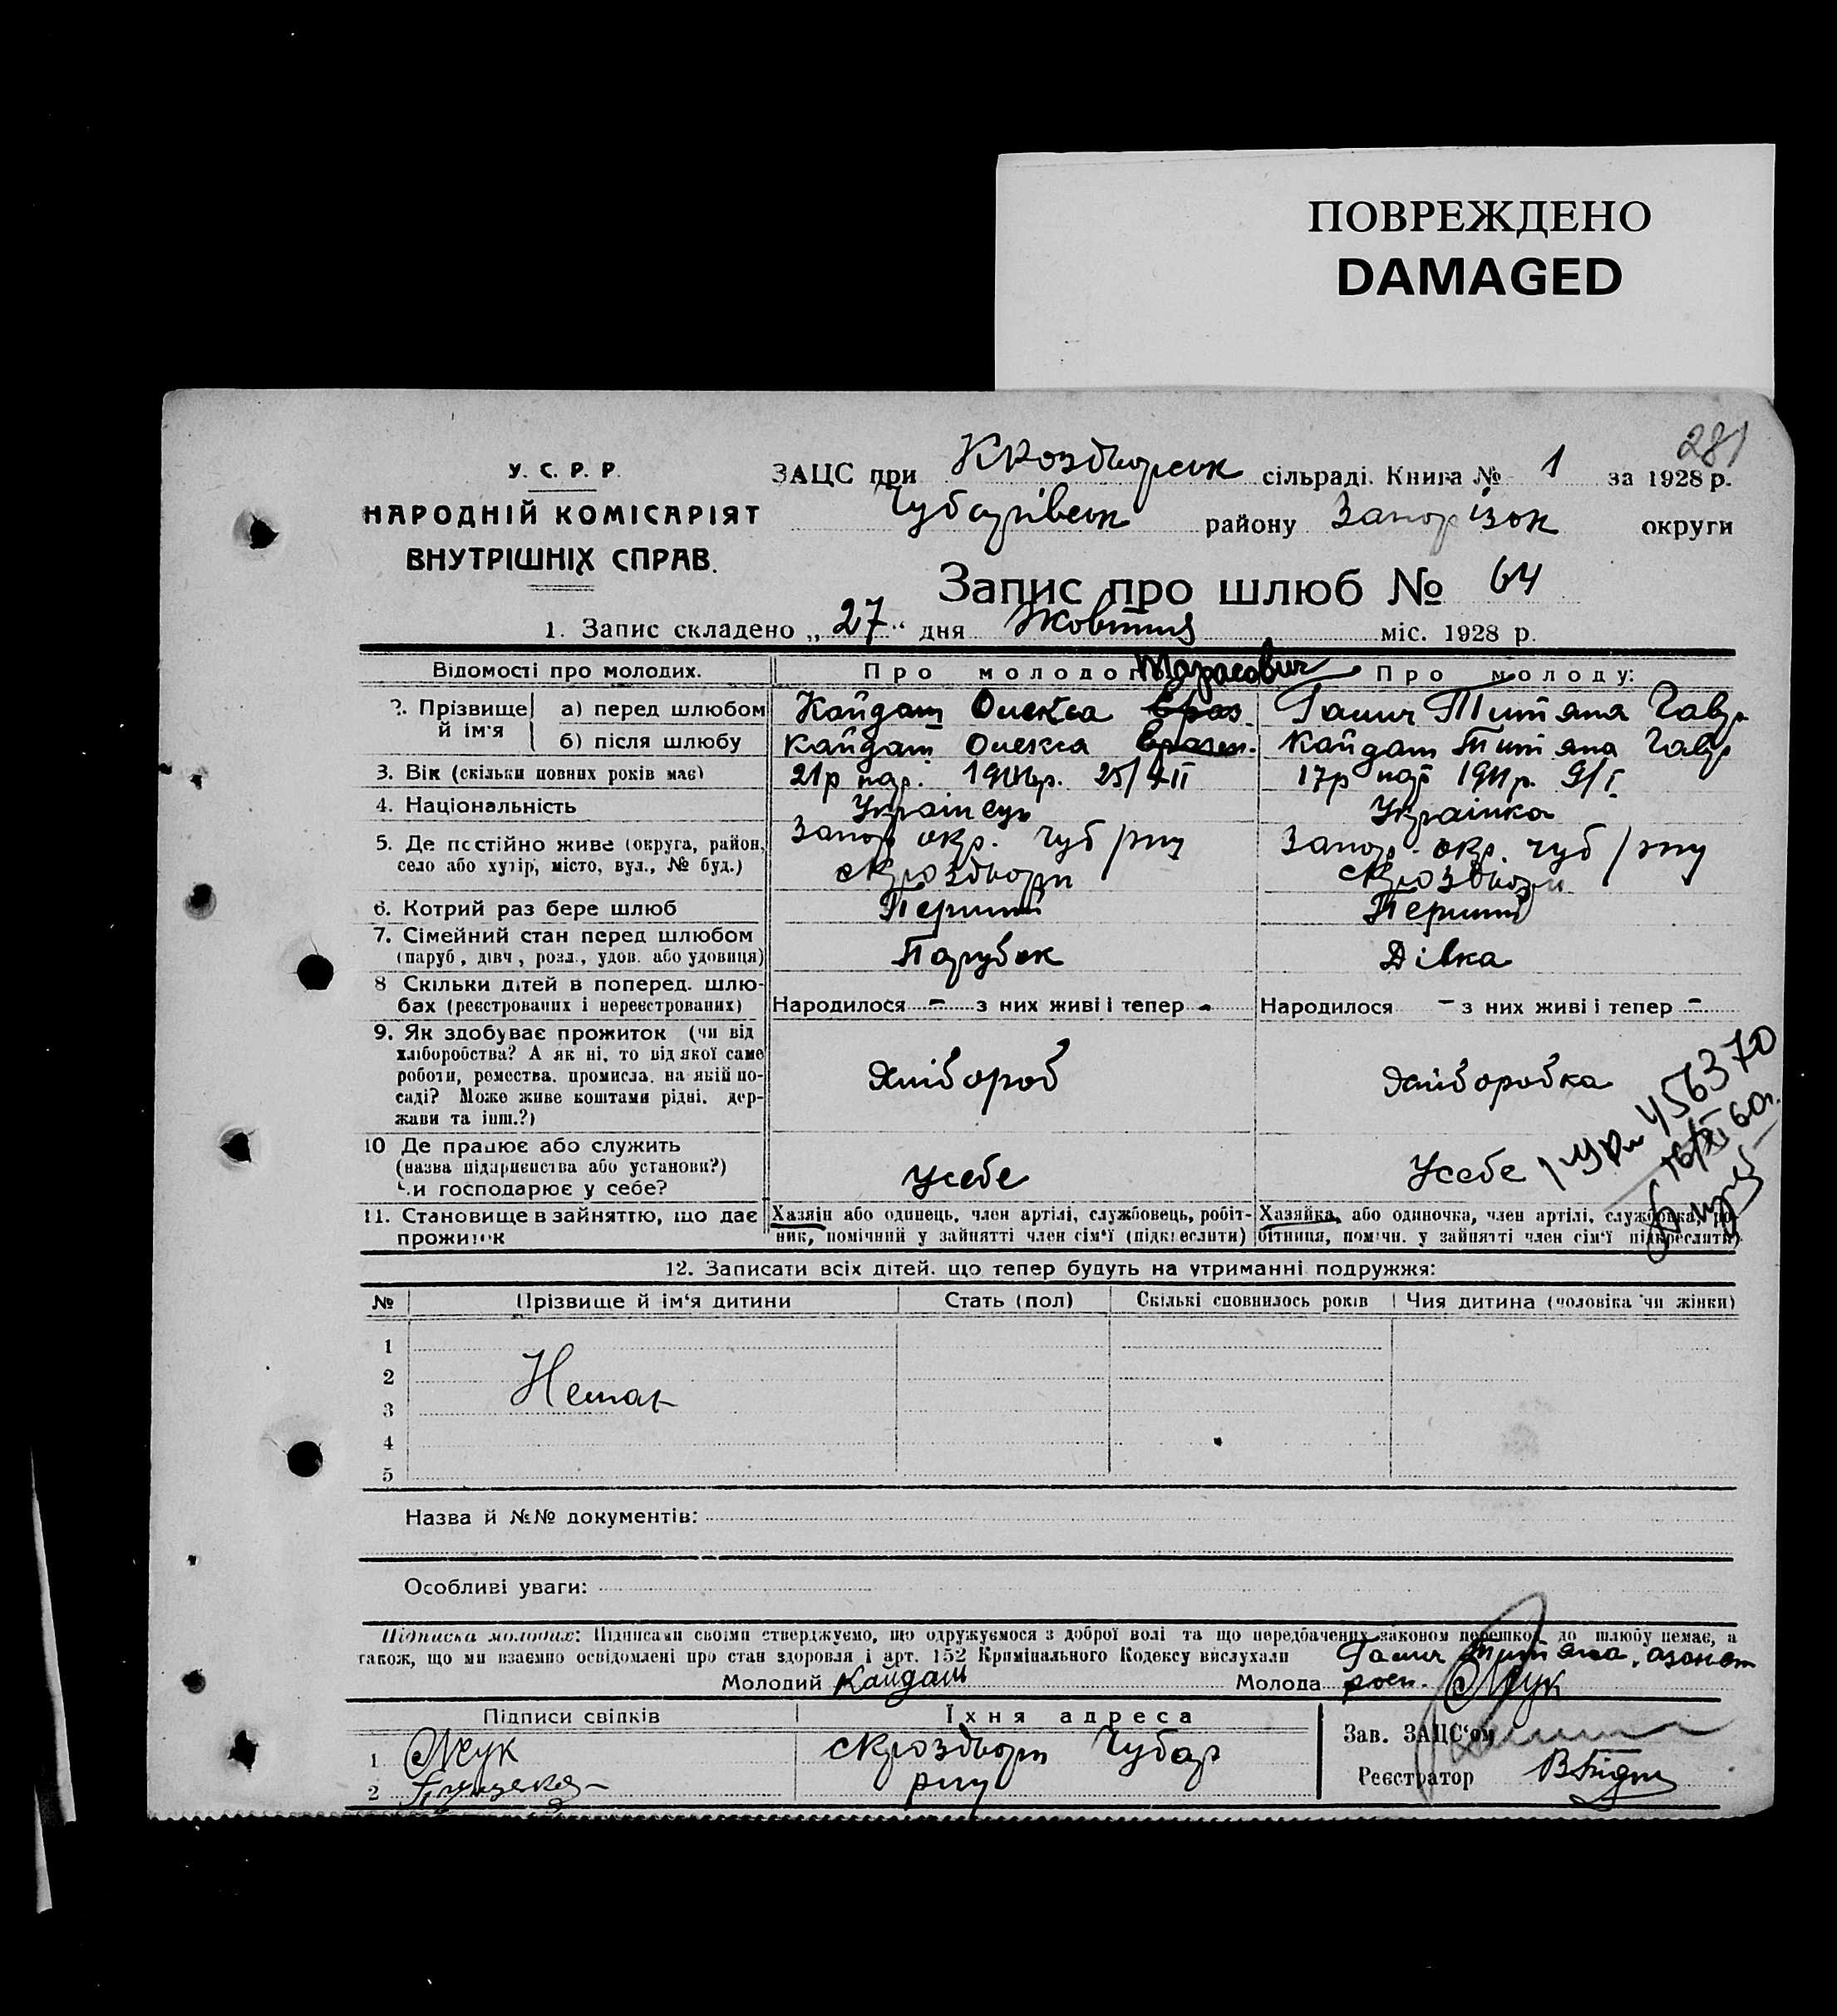 ПОВРЕЖДЕНО
DAMAGED
281
У. С. Р. Р.
НАРОДНІЙ КОМІСАРІЯТ
ВНУТРІШНІХ СПРАВ.
ЗАЦС при сільраді. Книга № 1 за 1928 р.
Чубарівськ району Запорізьк округи
Запис про шлюб № 64
1. Запис складено „27“ дня Жовтня міс. 1928 р.
Відомості про молодих. Про молодого Тарасович Про молоду:
2. Прізвище й ім'я а) перед шлюбом Кайдаш Олекса Титяна Гавр
б) після шлюбу Кайдаш Олекса Кайдаш Титяна Гавр
3. Вік (скільки повних років має) 21р нар. 25/ 17р нар 1911р. 9/I
4. Національність Українець Українка
5. Де постійно живе (округа, район, Запор окр. Чуб /рну Запор. окр. Чуб /рну
село або хутір, місто, вул., № буд.)
6. Котрий раз бере шлюб Перший Перший
7. Сімейний стан перед шлюбом
(паруб., дівч., розл., удов. або удовиця) Парубок Дівка
8 Скільки дітей в поперед. шлю-
бах (реєстрованих і нереєстрованих) Народилося - з них живі і тепер - Народилося - з них живі і тепер -
9. Як здобуває прожиток (чи від
хліборобства? А як ні, то від якої саме
роботи, ремества, промисла, на якій по- Хлібороб Хліборобка
саді? Може живе коштами рідні, дер-
жави та інш.?)
456370
16/XI 60г.
10 Де працює або служить
(назва підприємства або установи?) Усебе Усебе
Чи господарює у себе?
11. Становище в зайняттю, що дає Хазяін або одинець, член артілі, службовець, робіт- Хазяйка, або одиночка, член артілі, службовка, ро-
прожиток ник, помічний у зайнятті член сім'ї (підкреслити) бітниця, помічн. у зайнятті член сім'ї підкреслити)
12. Записати всіх дітей, що тепер будуть на утриманні подружжя:
№ Прізвище й ім'я дитини Стать (пол) Скількі сповнилось років Чия дитина (чоловіка чи жінки)
1
2
Немає
3
4
5
Назва й №№ документів:
Особливі уваги:
Підписка молодих: Підписами своїми стверджуємо, що одружуємося з доброї волі та що передбачених законом перешкод до шлюбу немає, а
також, що ми взаємно освідомлені про стан здоровля і арт. 152 Кримінального Кодексу вислухали Титяна
Молодий Кайдаш Молода Жук
Підписи свідків Їхня адреса
Зав. ЗАЦС'ом
1 Жук Чубар
рну
2
Реєстратор